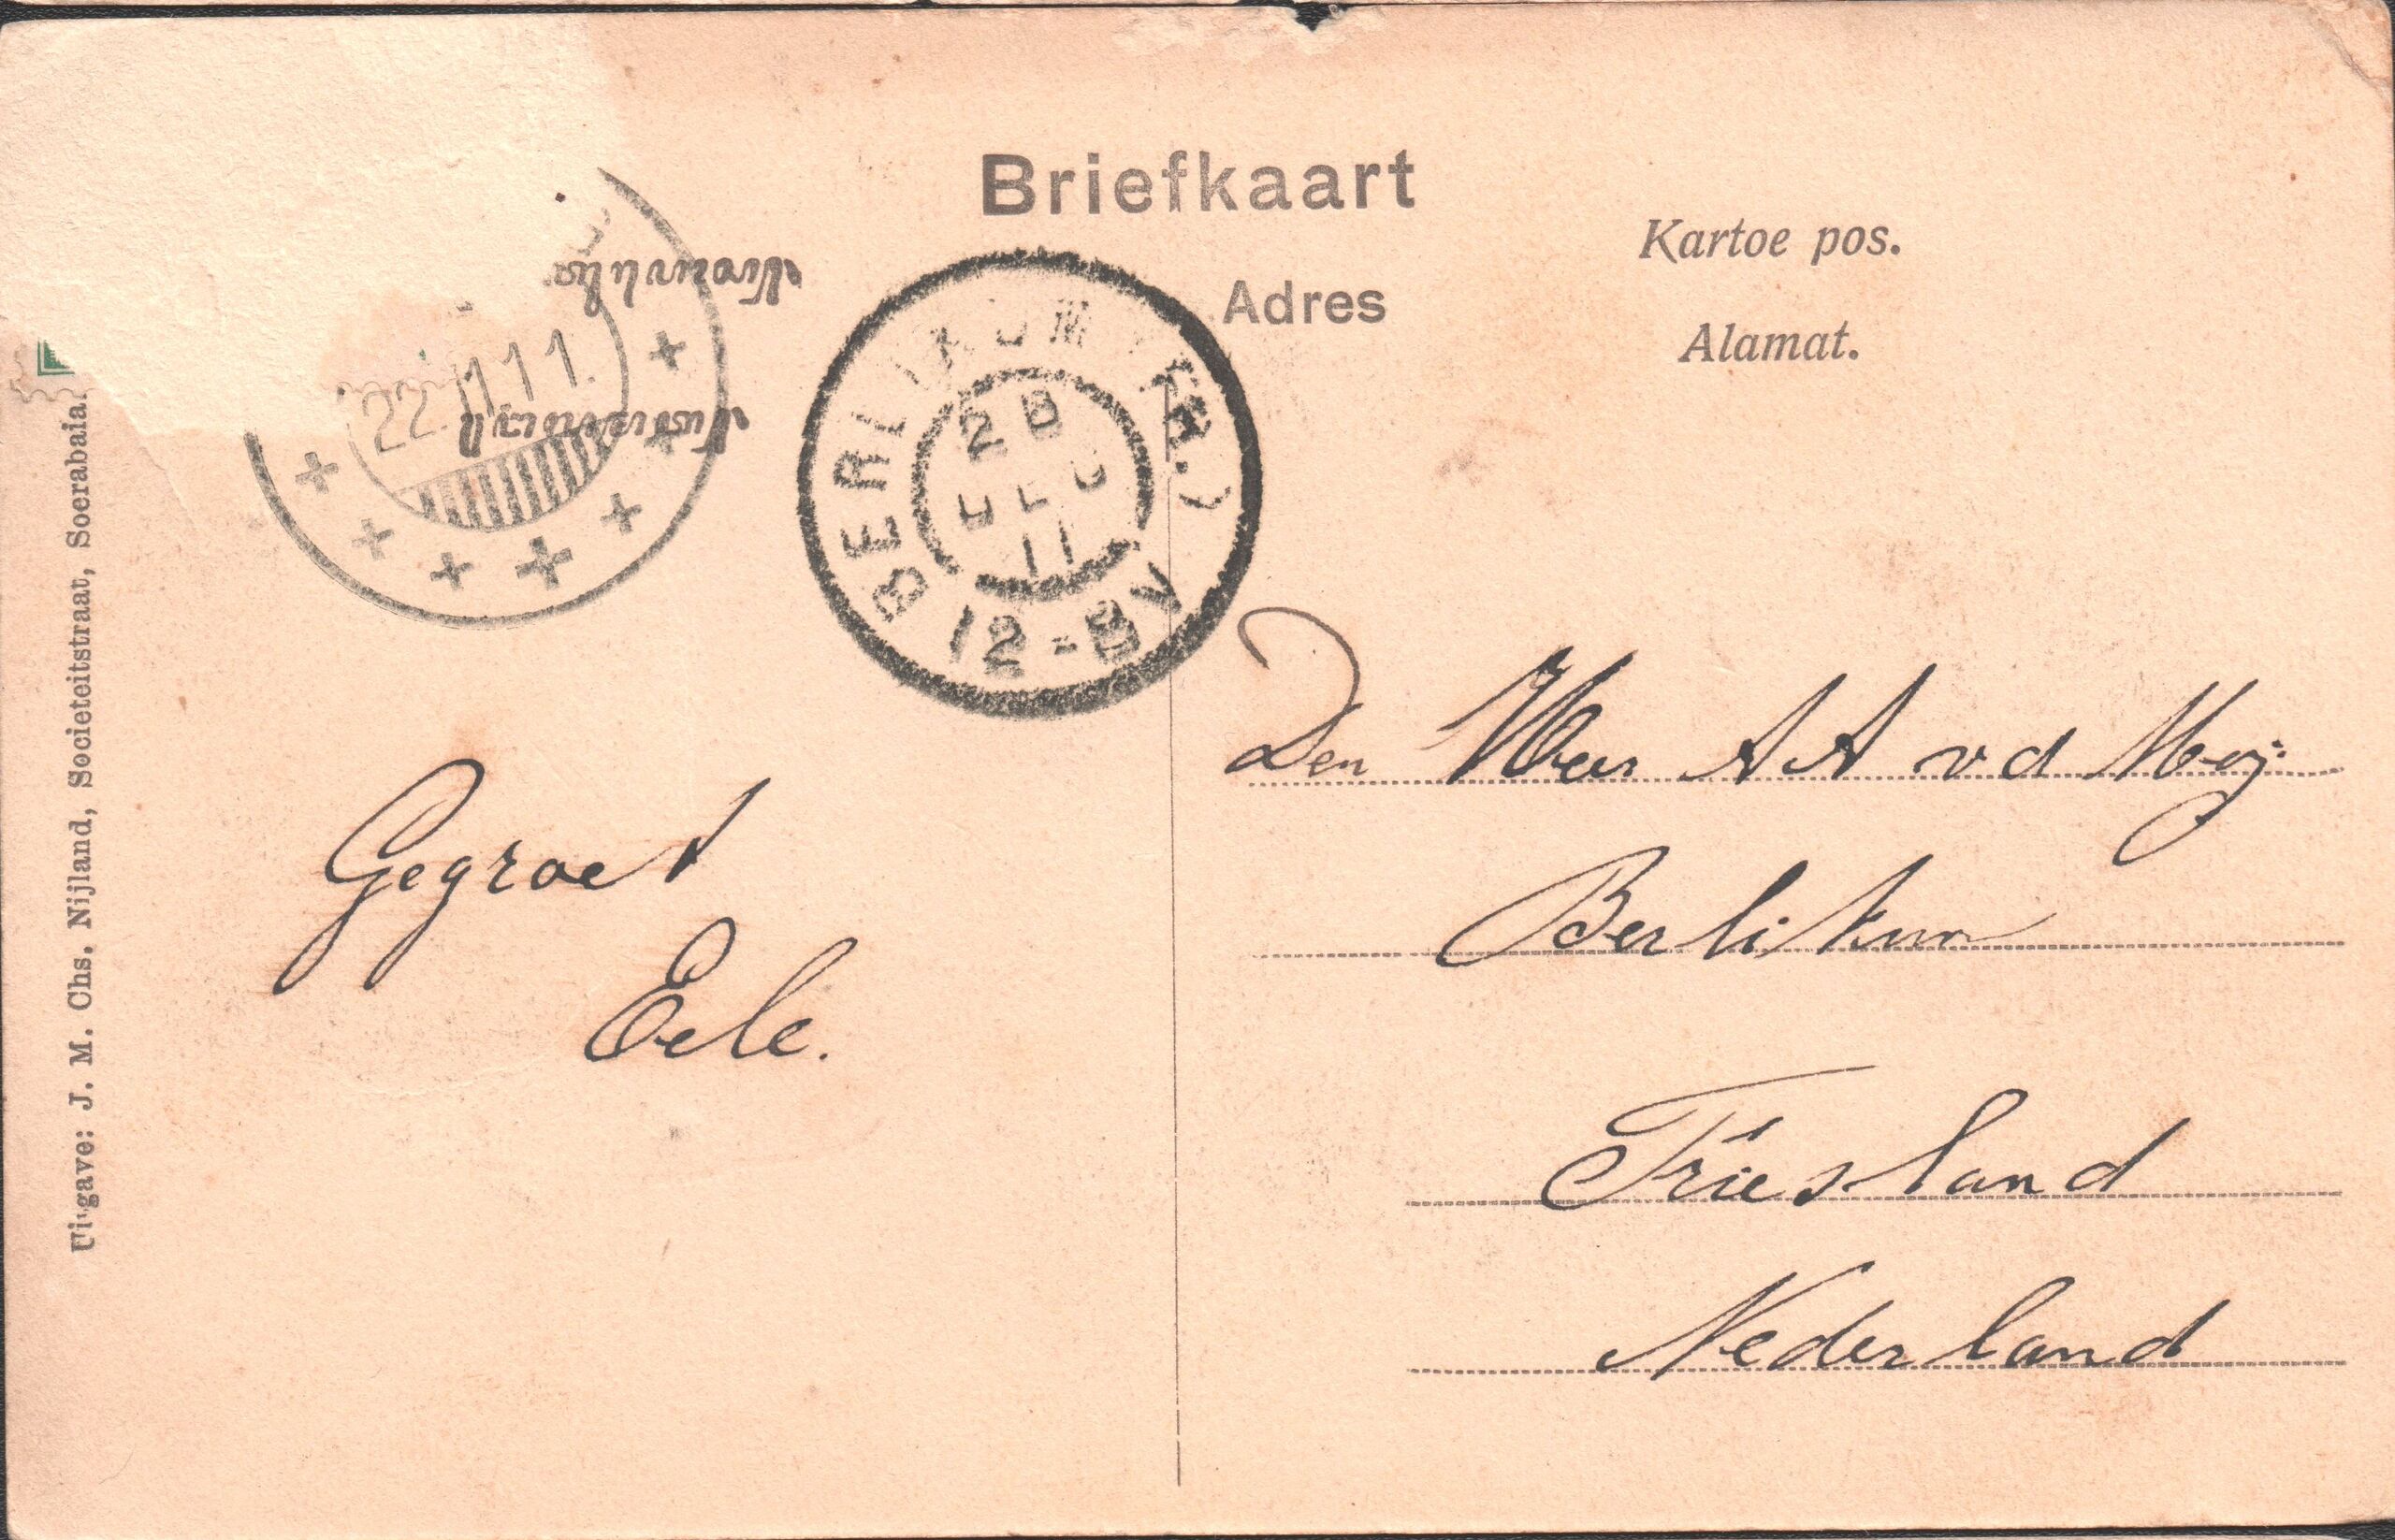 Briefkaart
Kartoe pos.
Adres
Alamat.
22.11.11.
BERLIKUM (FR.)
28
DEC
11
12-8V
Den Heer A A v d Meij
Berlikum
Friesland
Nederland
Gegroet
Eele.
Uitgave: J. M. Chs. Nijland, Societeitstraat, Soerabaia.